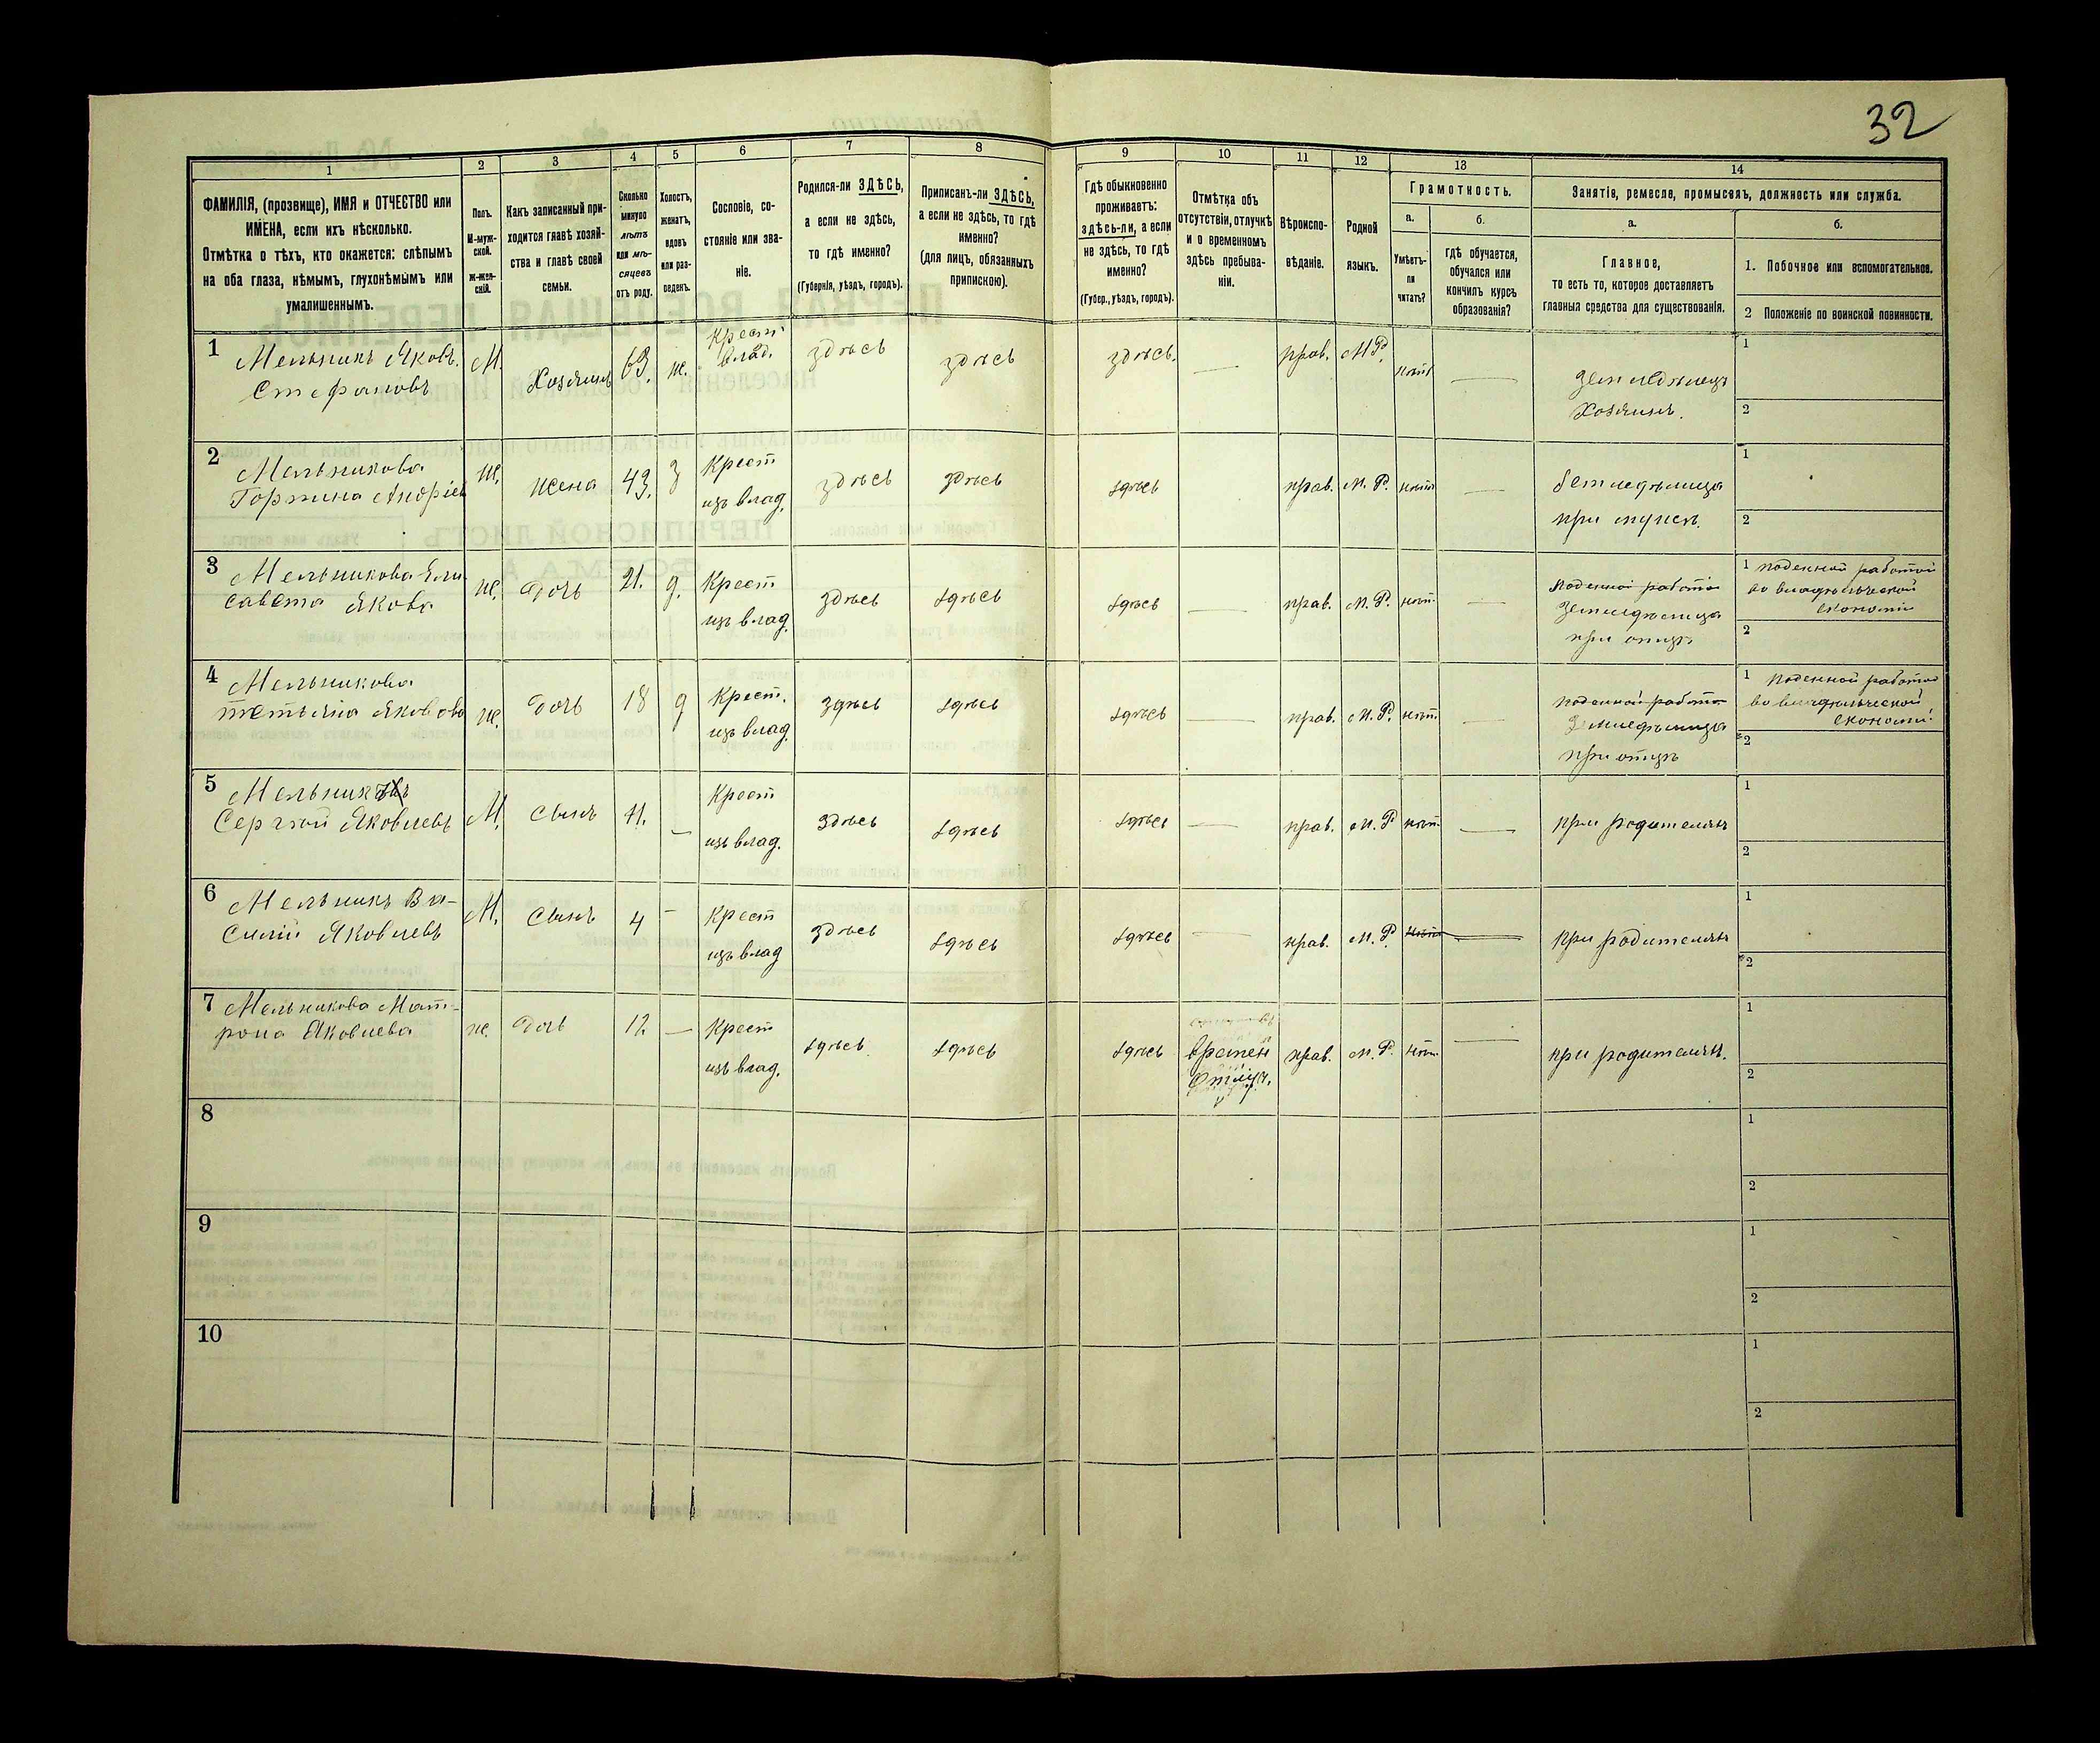 32
1 2 3 4 5 6 7 8 9 10 11 12 13 14
ФАМИЛІЯ, (прозвище), ИМЯ и ОТЧЕСТВО или
ИМЕНА, если ихъ нѣсколько.
Отмѣтка о тѣхъ, кто окажется: слѣпымъ
на оба глаза, нѣмымъ, глухонѣмымъ или
умалишеннымъ.
Полъ.
М-муж-
ской.
Ж-жен-
скій.
Какъ записанный при-
ходится главѣ хозяй-
ства и главѣ своей
семьи.
Сколько
минуло
лѣтъ
или мѣ-
сяцевъ
отъ роду.
Холостъ,
женатъ,
вдовъ
или раз-
веденъ.
Сословіе, со-
стояніе или зва-
ніе.
Родился-ли ЗДѢСЬ,
а если не здѣсь,
то гдѣ именно?
(Губернія, уѣздъ, городъ).
Приписанъ-ли ЗДѢСЬ,
а если не здѣсь, то гдѣ
именно?
(для лицъ, обязанныхъ
припискою).
Гдѣ обыкновенно
проживаетъ:
здѣсь-ли, а если
не здѣсь, то гдѣ
именно?
(Губер., уѣздъ, городъ).
Отмѣтка объ
отсутствіи, отлучкѣ
и о временномъ
здѣсь пребыва-
ніи.
Вѣроиспо-
вѣданіе.
Родной
языкъ.
Грамотность.
а.
Умѣетъ-
ли
читать?
б.
Гдѣ обучается,
обучался или
кончилъ курсъ
образованія?
Занятія, ремесло, промыселъ, должность или служба.
а.
Главное,
то есть то, которое доставляетъ
главныя средства для существованія.
б.
1. Побочное или вспомогательное.
2 Положеніе по воинской повинности.
1 Мельникъ Яковъ
Стефановъ
М. Хозяинъ 63. ж. Крест.
влад. здѣсь здѣсь здѣсь. — прав. М.Р. нѣтъ —
Земледѣлецъ
Хозяинъ.
1
2
2 Мельникова
Горпина Андрiев
ж. жена 43. з Крест
изъ влад. здѣсь здѣсь здѣсь прав. М. Р. нѣтъ —
земледѣлица
при мужѣ.
1
2
3 Мельникова Ели
савета Якова
ж. дочь 21. д. Крест
изъ влад. здѣсь здѣсь здѣсь — прав. М. Р. нѣт. —
поденной работой
земледѣлица
при отцѣ
1 поденной работой
во владѣльческой
економіи
2
4 Мельникова
Тетьяна Яковлова
ж. дочь 18 д Крест.
изъ влад. здѣсь здѣсь здѣсь — прав. М. Р. нѣт. —
поденной работ
Земледѣлица
при отцѣ
1 поденной работой
во владѣльческой
економіи
2
5 Мельникъ
Сергѣй Яковлевъ
М. сынъ 11. — Крест
изъ влад. здѣсь здѣсь здѣсь — прав. М. Р нѣт. —
при родителяхъ
1
2
6 Мельникъ Ва-
силій Яковлевъ
М. сынъ 4 — Крест
изъ влад здѣсь здѣсь здѣсь — прав. М. Р. нѣт —
при родителяхъ
1
2
7 Мельникова Мат-
рона Яковлева
ж. дочь 12 — Крест
изъ влад. здѣсь здѣсь здѣсь времен
отлуч. прав. М. Р. нѣт. —
при родителях.
1
2
8
1
2
9
1
2
10
1
2